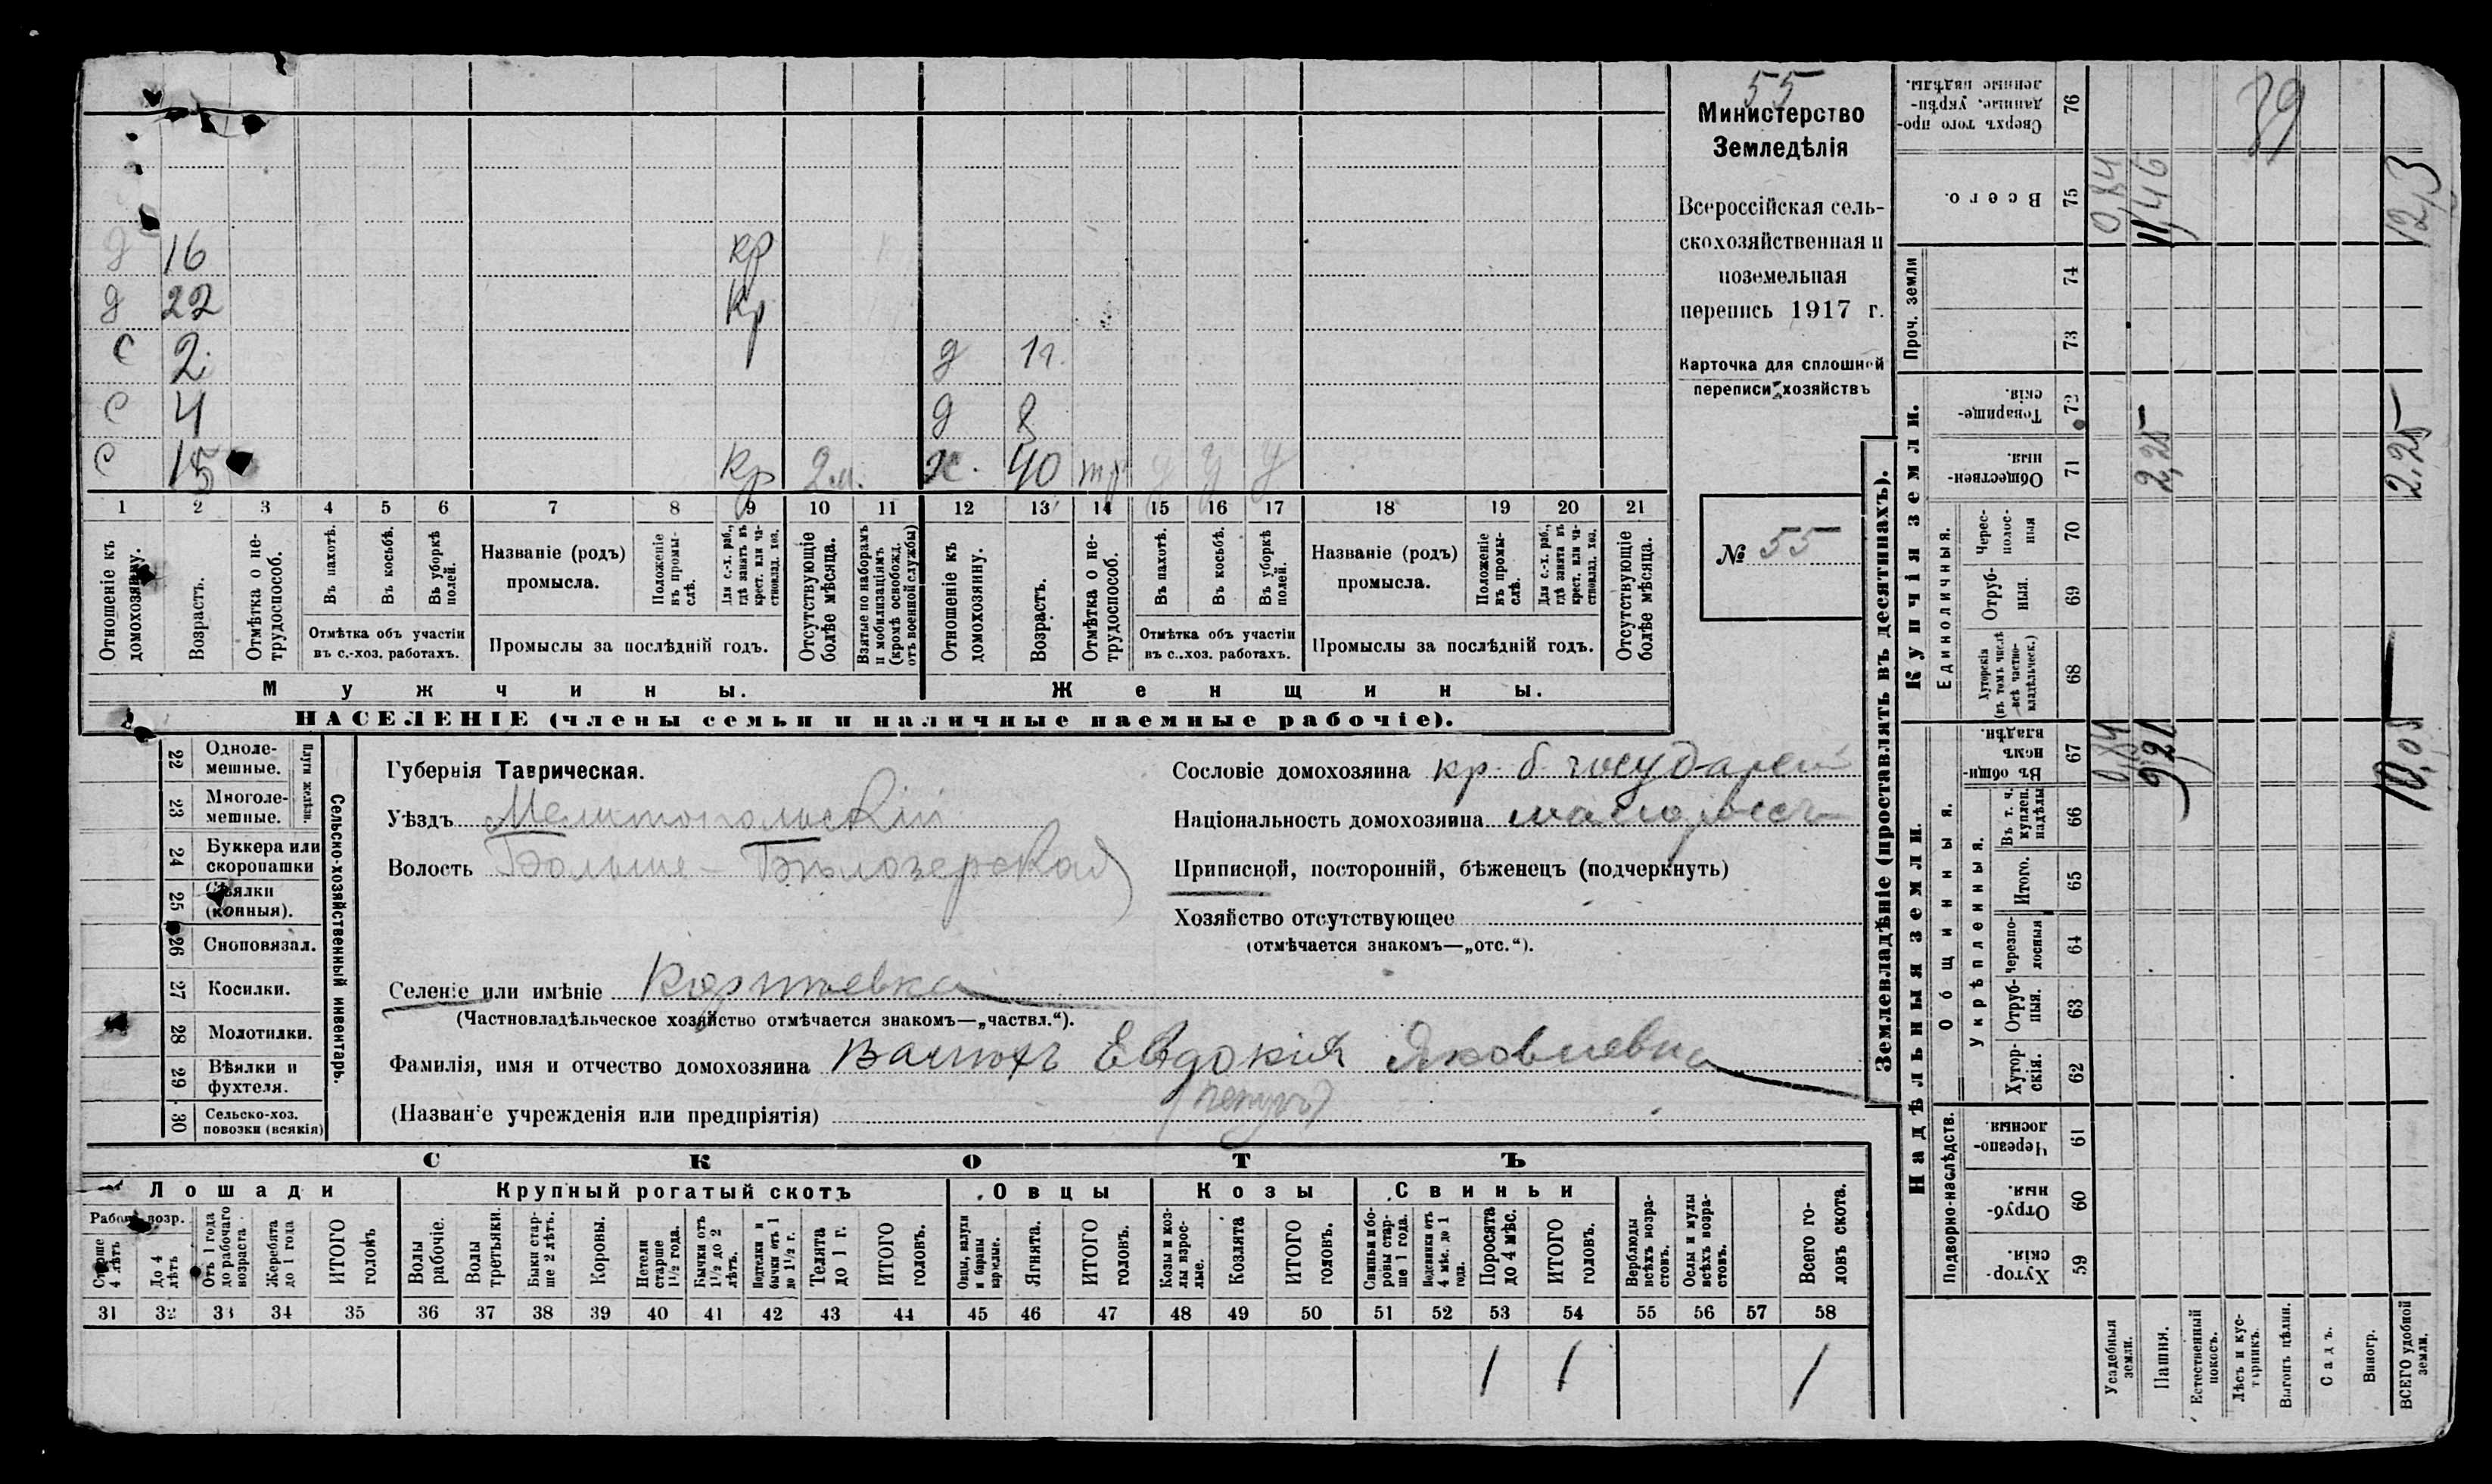 55
Министерство
Земледѣлія
Всероссійская сель-
скохозяйственная и
поземельная
перепись 1917 г.
Карточка для сплошной
переписи хозяйствъ
№ 55
д 16 кр
д 22 кр
с 2 д 11
с 4 д 8
с 15 кр 2 м. х. 40 у у у
1 2 3 4 5 6 7 8 9 10 11 12 13 14 15 16 17 18 19 20 21
Отношеніе къ домохозяину.
Возрастъ.
Отмѣтка о не-трудоспособ.
Въ пахотѣ.
Въ косьбѣ.
Въ уборкѣ полей.
Отмѣтка объ участіи
въ с.-хоз. работахъ.
Названіе (родъ)
промысла.
Положеніе въ промы-слѣ.
Для с.-х. раб., гдѣ занятъ въ крест. или ча-стновлад. хоз.
Промыслы за послѣдній годъ.
Отсутствующіе болѣе мѣсяца.
Взятые по наборамъ и мобилизаціямъ (кромѣ освобожд. отъ военной службы)
Отношеніе къ домохозяину.
Возрастъ.
Отмѣтка о не-трудоспособ.
Въ пахотѣ.
Въ косьбѣ.
Въ уборкѣ полей.
Отмѣтка объ участіи
въ с..хоз. работахъ.
Названіе (родъ)
промысла.
Положеніе въ промы-слѣ.
Для с.-х. раб., гдѣ занята въ крест. или ча-стновлад. хоз.
Промыслы за послѣдній годъ.
Отсутствующіе болѣе мѣсяца.
Мужчины.
Женщины.
НАСЕЛЕНІЕ (члены семьи и наличные наемные рабочіе).
22 Одноле-мешные.
23 Многоле-мешные.
Плуги желѣзн.
24 Буккера или скоропашки
25 Сѣялки (конныя).
26 Сноповязал.
27 Косилки.
28 Молотилки.
29 Вѣялки и фухтеля.
30 Сельско-хоз. повозки (всякія)
Сельско-хозяйственный инвентарь.
Губернія Таврическая.
Уѣздъ Мелитопольскій
Волость Больше-Бѣлозерская
Селеніе или имѣніе
(Частновладѣльческое хозяйство отмѣчается знакомъ—„частвл.“).
Фамилія, имя и отчество домохозяина Евдокія Яковлевна
(Названіе учрежденія или предпріятія)
Сословіе домохозяина кр. б. государст
Національность домохозяина малоросс
Приписной, посторонній, бѣженецъ (подчеркнуть)
Хозяйство отсутствующее
(отмѣчается знакомъ—„отс.“).
СКОТЪ
Лошади
Крупный рогатый скотъ
Овцы
Козы
Свиньи
Рабоч. возр.
Старше 4 лѣтъ
До 4 лѣтъ
Отъ 1 года до рабочаго возраста
Жеребята до 1 года
ИТОГО головъ
Волы рабочіе.
Волы третьяки.
Быки стар-ше 2 лѣтъ.
Коровы.
Нетели старше 1½ года.
Бычки отъ 1½ до 2 лѣтъ.
Подтелки и бычки отъ 1 до 1½ г.
Телята до 1 г.
ИТОГО головъ.
Овцы, валухи и бараны взрослые.
Ягнята.
ИТОГО головъ.
Козы и коз-лы взрос-лые.
Козлята
ИТОГО головъ.
Свиньи и бо-ровы стар-ше 1 года.
Подсвинки отъ 4 мѣс. до 1 года.
Поросята до 4 мѣс.
ИТОГО головъ.
Верблюды всѣхъ возра-стовъ.
Ослы и мулы всѣхъ возра-стовъ.
Всего го-ловъ скота.
31 32 33 34 35 36 37 38 39 40 41 42 43 44 45 46 47 48 49 50 51 52 53 54 55 56 57 58
1 1 1
Землевладѣніе (проставлять въ десятинахъ).
Надѣльныя земли.
Купчія земли.
Проч. земли
Подворно-наслѣдств.
Общинныя.
Укрѣпленныя.
Единоличныя.
Хутор-скія. 59
Отруб-ныя. 60
Черезпо-лосныя. 61
Хутор-скія. 62
Отруб-ныя. 63
Черезпо-лосныя 64
Итого. 65
Въ т. ч. куплен. надѣлы 66
Въ общи-номъ владѣн. 67
Хуторскія (въ томъ числѣ всѣ частно-владѣльческ.) 68
Отруб-ныя. 69
Черес-полос-ныя 70
Обществен-ныя. 71
Товарище-скія. 72
73
74
Всего. 75
Сверхъ того про-данные, укрѣп-ленные надѣлы. 76
Усадебныя земли. 0,84 0,84
Пашня. 9,21 2,25 11,46
Естественный покосъ.
Лѣсъ и кус-тарникъ.
Выгонъ цѣлин.
Садъ.
Виногр.
ВСЕГО удобной земли. 10,05 2.25 12,3
39